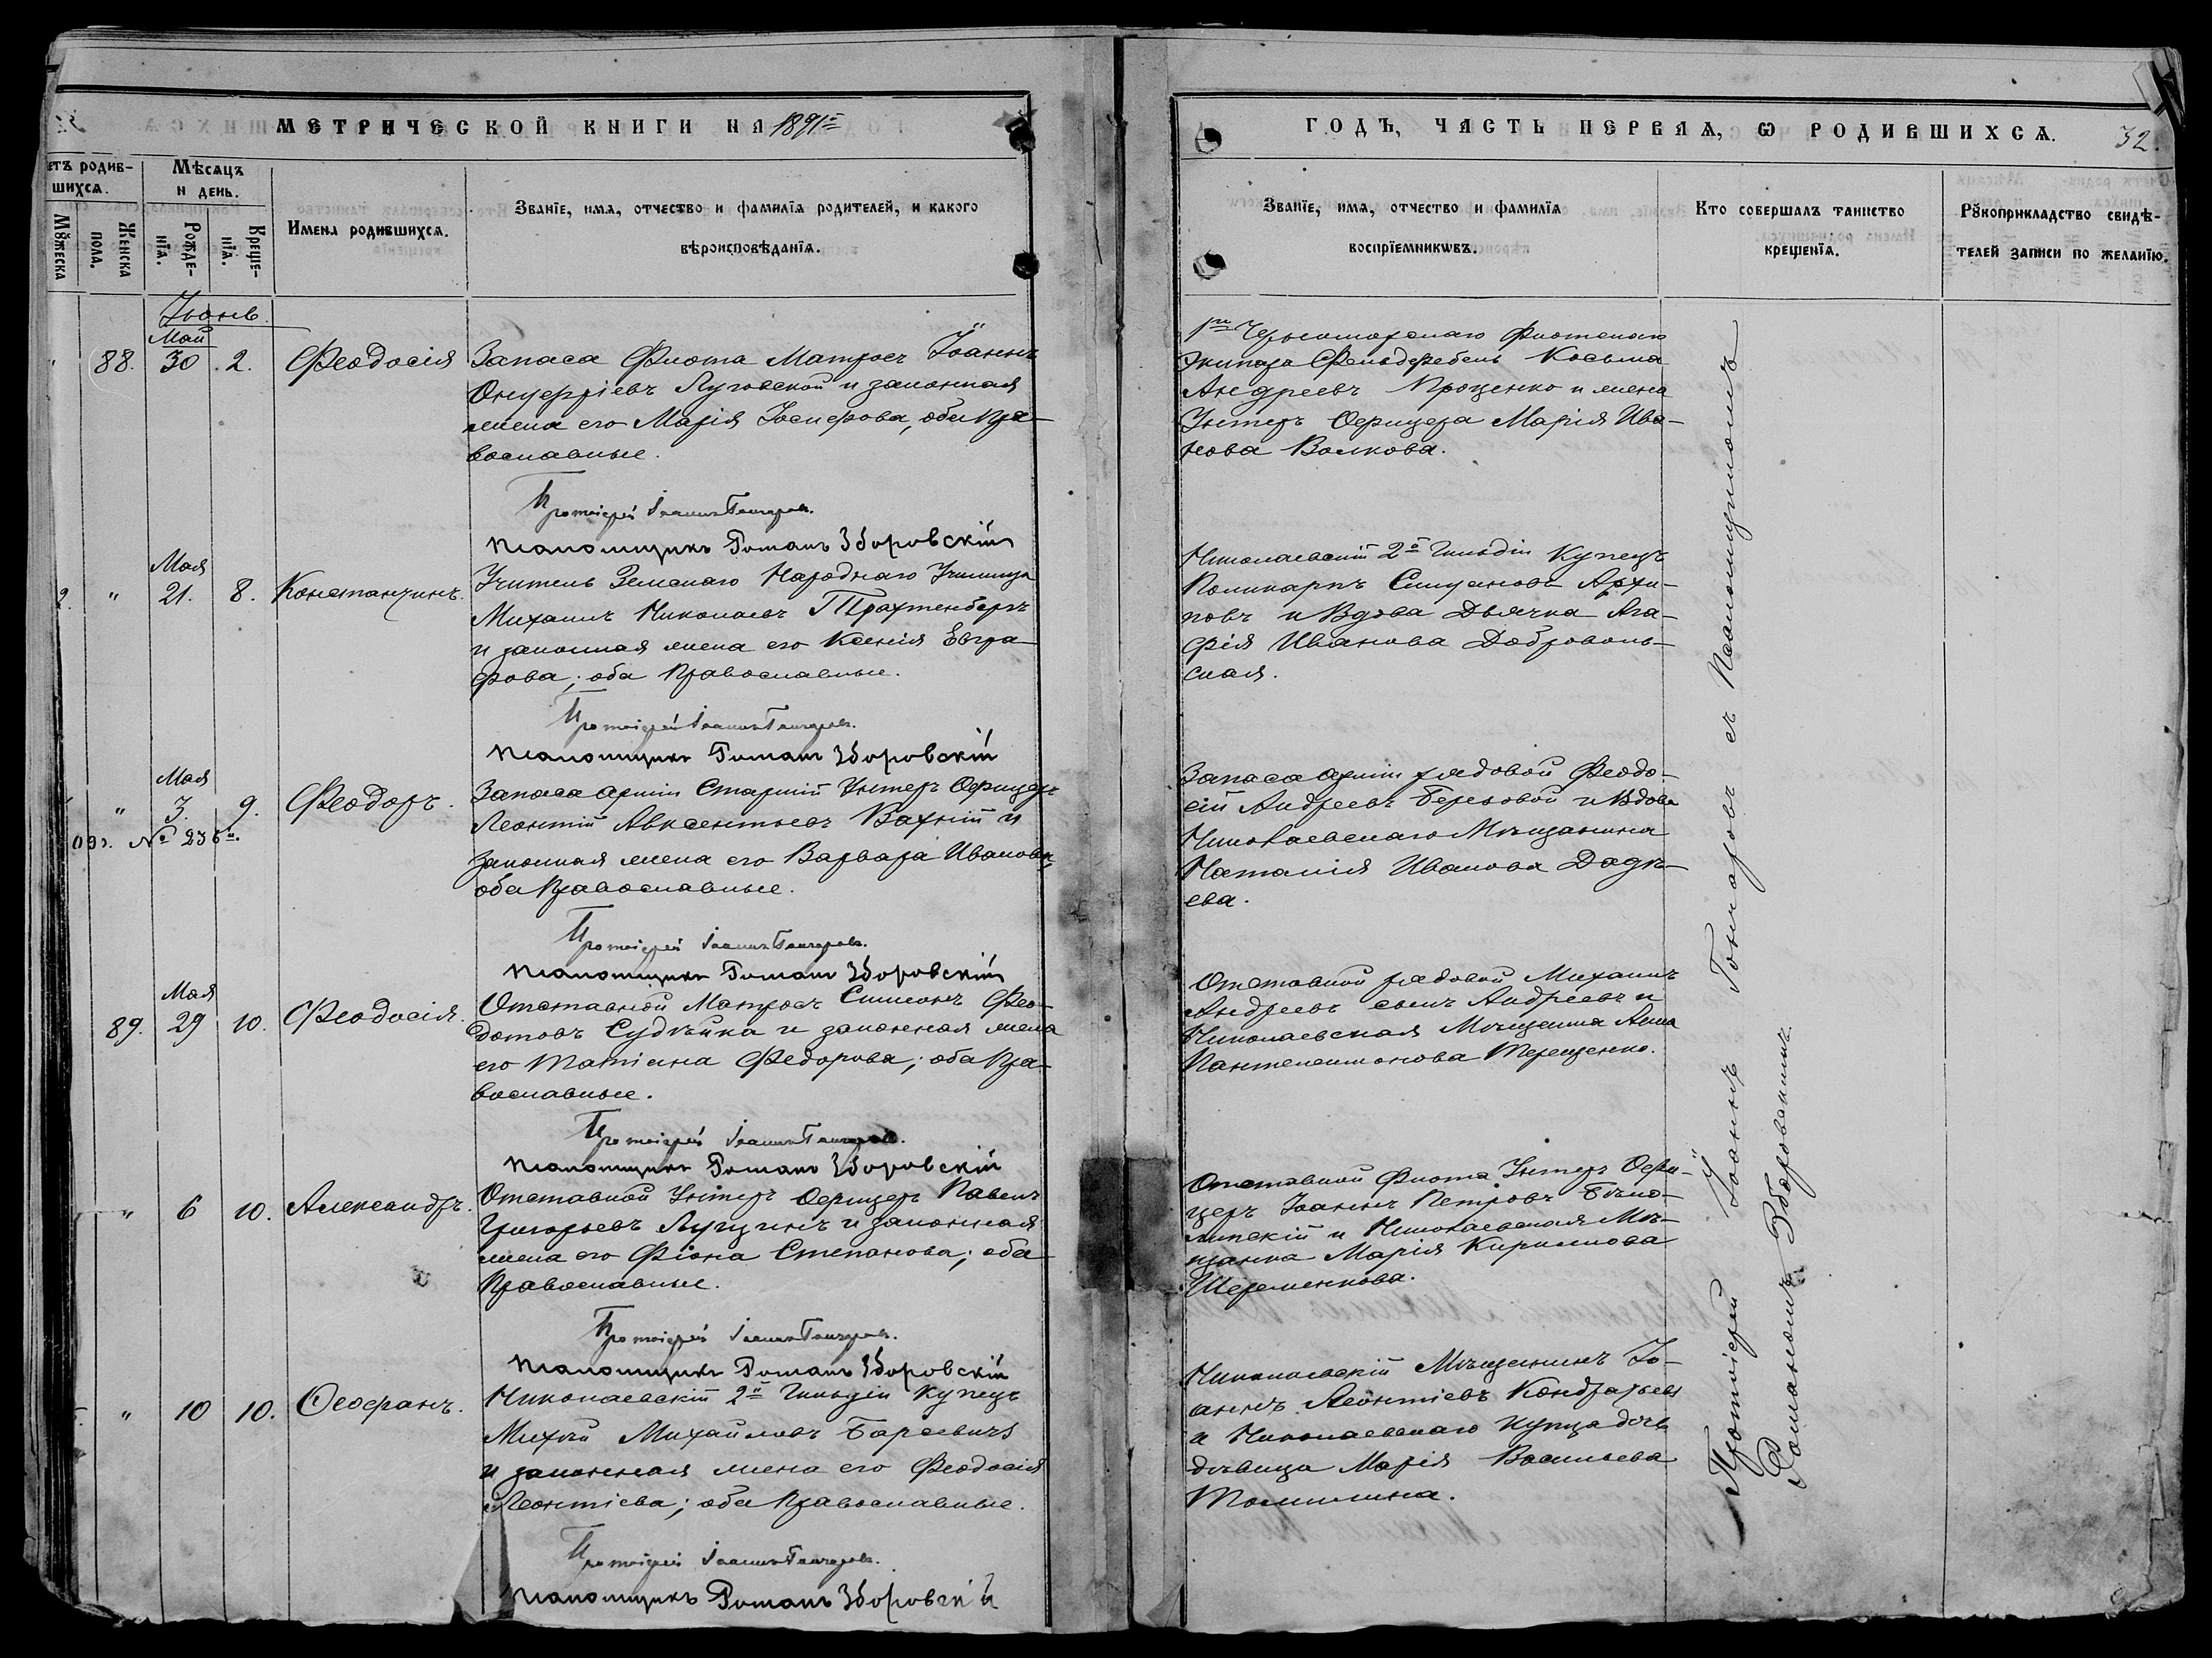 МЕТРИЧЕСКОЙ КНИГИ НА 1891й
ГОДЪ, ЧАСТЬ ПЕРВАЯ, Ѡ РОДИВШИХСѦ. 32.
етъ родив-
шихсѧ.
Мꙋжеска
Женска
пола.
Мѣсѧцъ
и день.
Рожде-
нїѧ.
Креще-
нїѧ.
Имена родившихсѧ.
Званїе, имѧ, отчество и фамилїѧ родителей, и какого
вѣроисповѣданїѧ.
Званїе, имѧ, отчество и фамилїѧ
воспрїемникѡвъ.
Кто совершалъ таинство
крещенїѧ.
Рꙋкоприкладство свидѣ-
телей записи по желанїю.
Іюнь.
Май
88. 30 2. Феодосія
Запаса Флота Матросъ Іоаннъ
Онуфріевъ Луговской и законная
жена его Марія Іосифова, оба Пра-
вославные.
Протоіерей Іоаннъ Гончаровъ.
Псаломщикъ Романъ Зборовскій
1го Черноморскаго Флотскаго
Экипажа Фельдфебель Косьма
Андреевъ Проценко и жена
Унтеръ Офицера Марія Ива-
нова Волкова.
Мая
" 21. 8. Константинъ.
Учитель Земскаго Народнаго Училища
Михаилъ Николаевъ Трахтенбергъ
и законная жена его Ксенія Евгра-
фова; оба Православные.
Протоіерей Іоаннъ Гончаровъ.
Псаломщикъ Романъ Зборовскій
Николаевскій 2й Гильдіи Купецъ
Поликарпъ Архи-
повъ и Вдова Дьячка Ага-
фія Иванова Доброволь-
ская.
Мая
" 3. 9. Феодоръ.
№ 236
Запаса Арміи Старшій Унтеръ Офицеръ
Леонтій Авксентьевъ Вахній и
законная жена его Варвара Иванова,
оба Православные.
Протоіерей Іоаннъ Гончаровъ.
Псаломщикъ Романъ Зборовскій
Запаса арміи рядовой Феодо-
сій Андреевъ Березовой и Вдова
Николаевскаго Мѣщанина
Наталія Иванова Дадѣ-
ева.
Мая
89. 29 10. Феодосія.
Отставной Матросъ Симеонъ Фео-
дотовъ Судѣйка и законная жена
его Татіана Федорова; оба Пра-
вославные.
Протоіерей Іоаннъ Гончаровъ.
Псаломщикъ Романъ Зборовскій
Отставной рядовой Михаилъ
Андреевъ сынъ Андреевъ и
Николаевская Мѣщанка Анна
Пантелеимонова Терещенко.
" 6 10. Александръ.
Отставной Унтеръ Офицеръ Павелъ
Григорьевъ Лущинъ и законная
жена его Фіона Степанова; оба
Православные.
Протоіерей Іоаннъ Гончаровъ.
Псаломщикъ Романъ Зборовскій
Отставной Флота Унтеръ Офи-
церъ Іоаннъ Петровъ Бѣло-
липскій и Николаевская Мѣ-
щанка Марія Кириллова
Шереметкова.
" 10 10. Феофанъ.
Николаевскій 2й Гильдіи Купецъ
Михей Михайловъ Барсевичъ
и законная жена его Феодосія
Леонтіева; оба Православные.
Протоіерей Іоаннъ Гончаровъ.
Псаломщикъ Романъ Зборовскій
Николаевскій Мѣщанинъ Іо-
аннъ Леонтіевъ Кондратьевъ
и Николаевскаго Купца дочь
дѣвица Марія Васильева
Томилина.
Протоіерей Іоаннъ Гончаровъ съ Псаломщикомъ
Романомъ Зборовскимъ